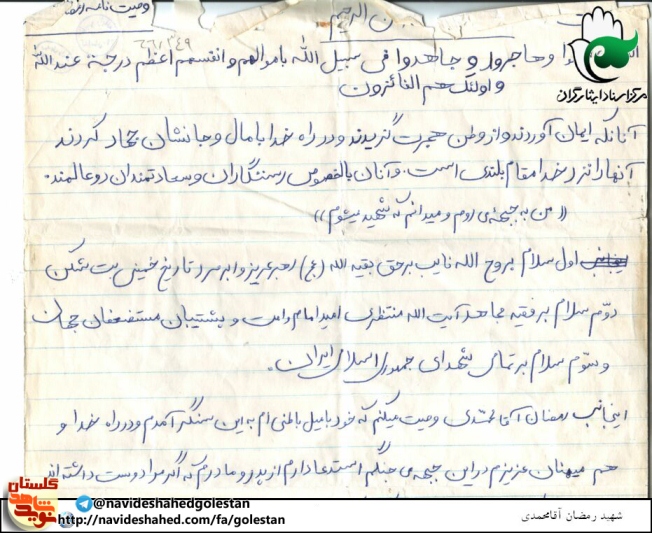 وصیت نامه
ن الرحیم
۶۱/۳۴۹
وا وهاجروا وجاهدوا فی سبیل الله باموالهم وانفسهم اعظم درجة عندالله
مرکز اسناد ایثارگران
و اولئک هم الفائزون
آنانکه ایمان آوردند و از وطن هجرت گزیدند و در راه خدا با مال و جانشان جهاد کردند
آنها را نزد خدا مقام بلندی است. و آنان بالخصوص رستگاران و سعادتمندان دو عالمند.
(( من به جبهه می روم و میدانم که شهید میشوم ))
اول سلام بر روح الله نایب بر حق بقیه الله (عج) رهبر عزیز و ابرمرد تاریخ خمینی بت شکن
دوّم سلام بر فقیه مجاهد آیت الله منتظری امید امام و امت و پشتیبان مستضعفان جهان
و سوّم سلام بر تمامی شهدای جمهوری اسلامی ایران.
اینجانب رمضان آقامحمدی وصیت میکنم که خود با میل باطنی ام به این سنگر آمدم و در راه خدا و
هم میهنان عزیزم در این جبهه می جنگم استدعا دارم از پدر و مادرم که اگر مرا دوست داشته اند
گلستان
نوید شاهد
@navideshahedgolestan
http://navideshahed.com/fa/golestan
شهید رمضان آقامحمدی